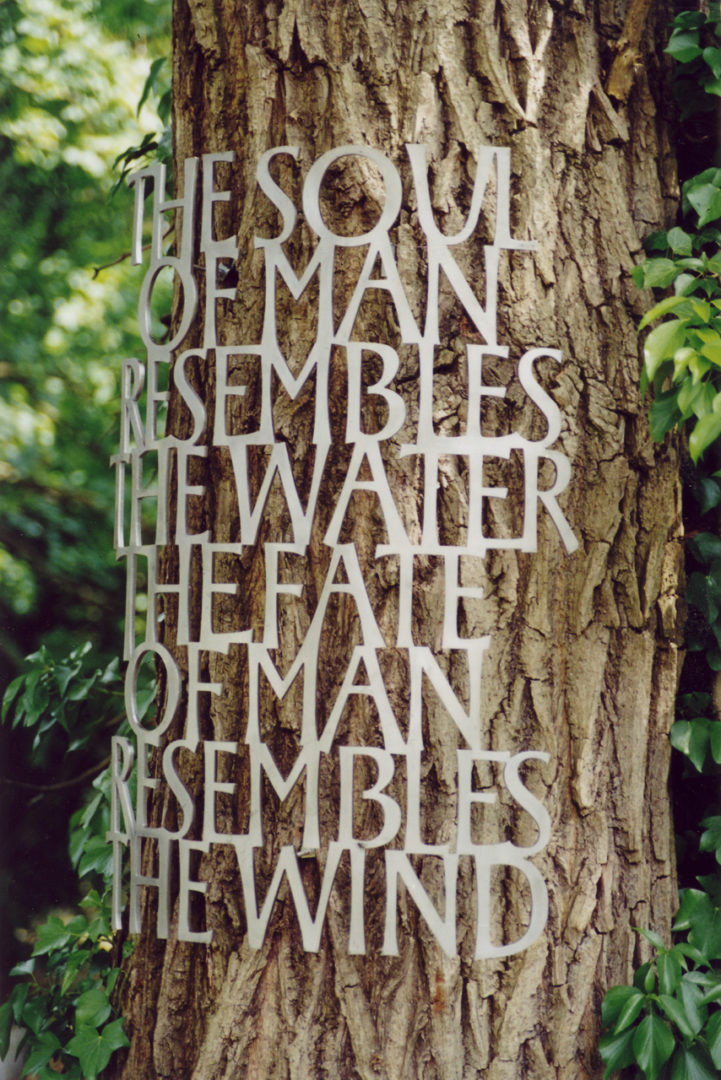 THE SOUL
OF MAN
RESEMBLES
THE WATER
THE FATE
OF MAN
RESEMBLES
THE WIND